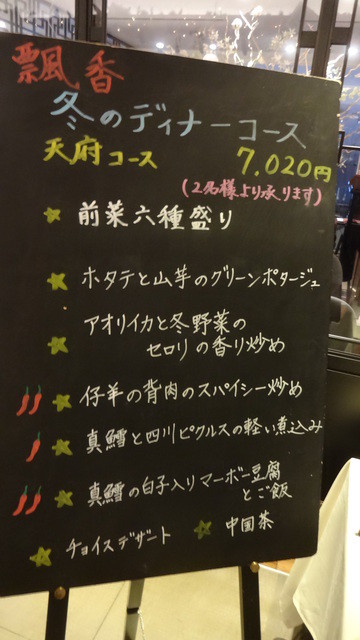 飄香
冬のディナーコース
天府コース 7,020円
(2名様より承ります)
前菜六種盛り
ホタテと山芋のグリーンポタージュ
アオリイカと冬野菜の
セロリの香り炒め
仔羊の背肉のスパイシー炒め
真鱈と四川ピクルスの軽い煮込み
真鱈の白子入りマーボー豆腐
とご飯
チョイスデザート 中国茶